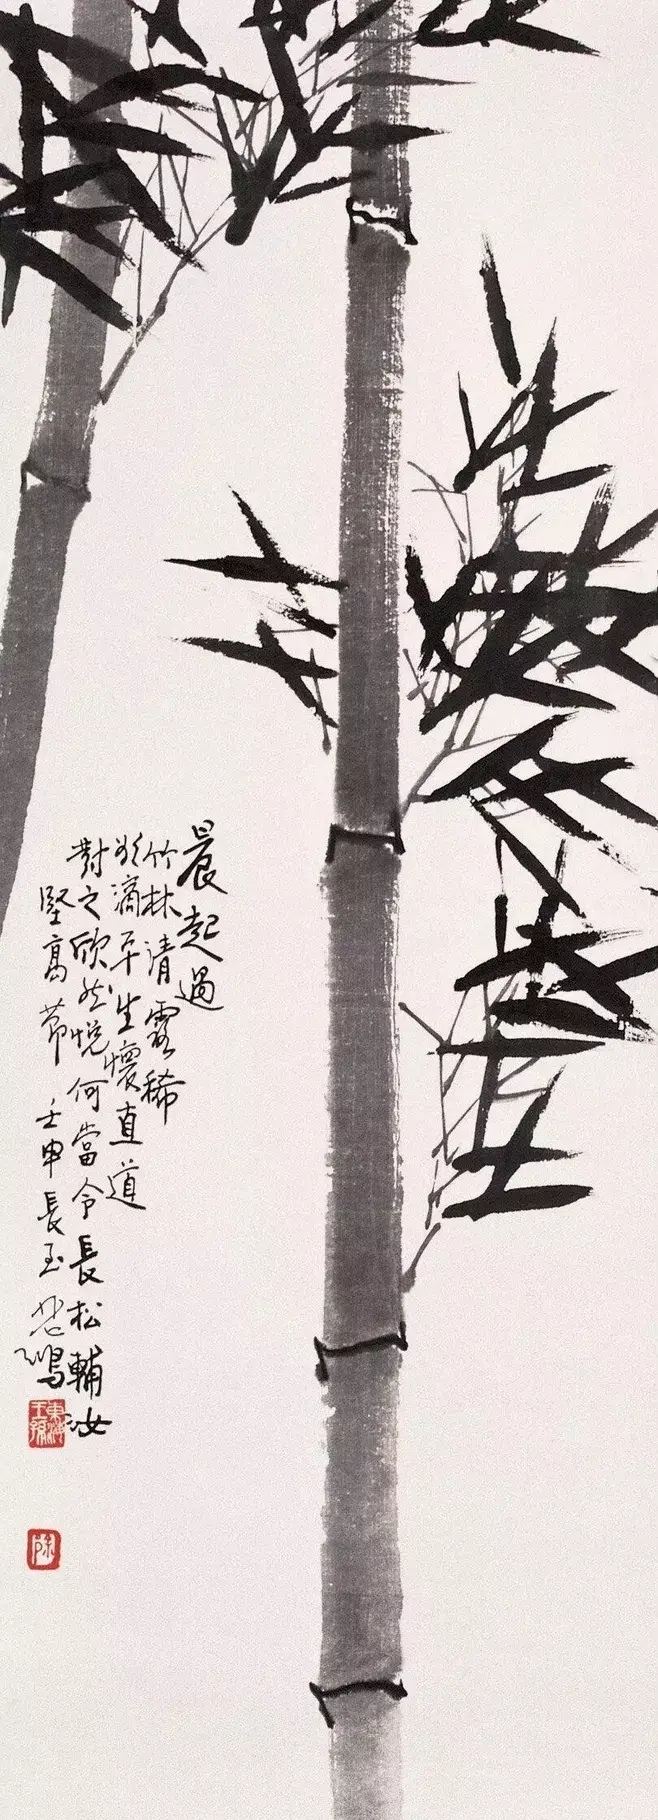 晨起過
竹林清露稀
欲滴平生懷直道
對之欣然悅何當令長松輔汝
堅高節 壬申長至 悲鴻
東海王孫
陳